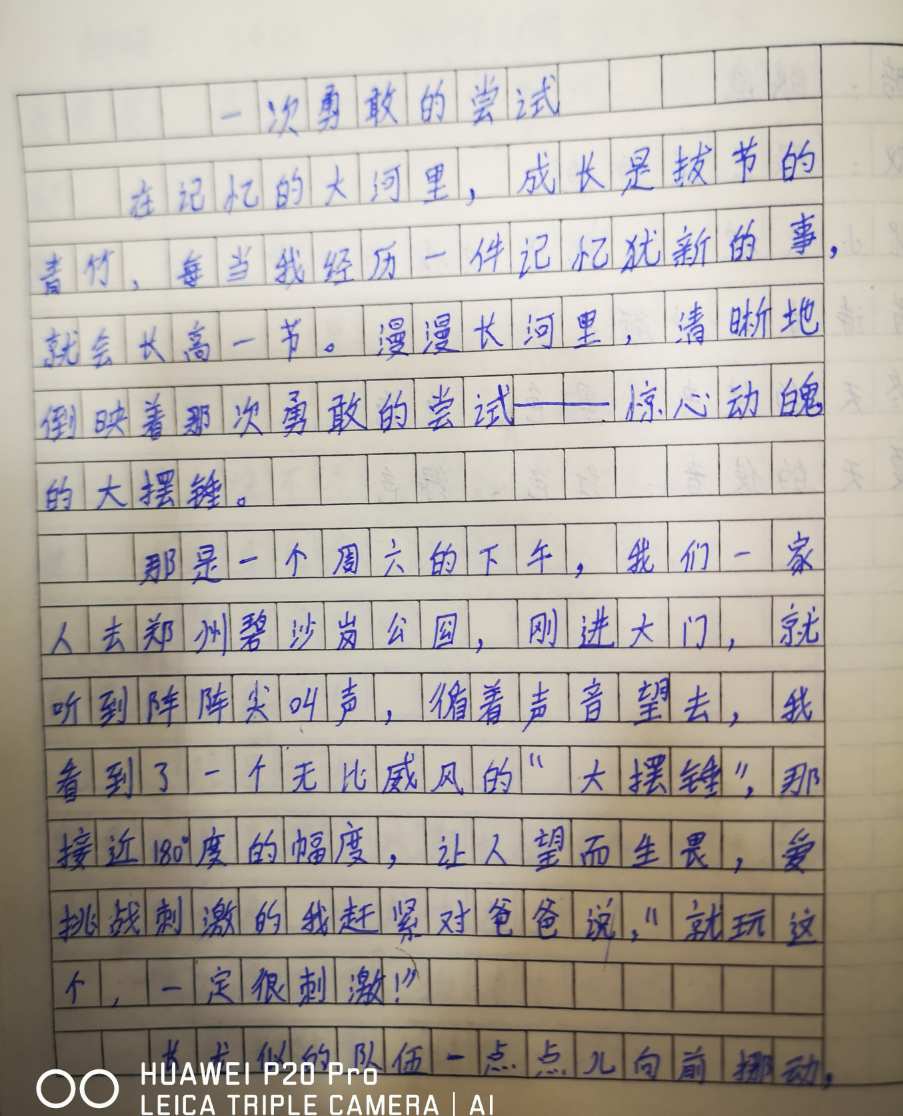 一次勇敢的尝试
在记忆的大河里，成长是拔节的
青竹、每当我经历一件记忆犹新的事，
就会长高一节。漫漫长河里，清晰地
倒映着那次勇敢的尝试——惊心动魄
的大摆锤。
那是一个周六的下午，我们一家
人去郑州碧沙岗公园，刚进大门，就
听到阵阵尖叫声，循着声音望去，我
看到了一个无比威风的“大摆锤”，那
接近180°度的幅度，让人望而生畏，爱
挑战刺激的我赶紧对爸爸说，“就玩这
个，一定很刺激！”
似的队伍一点点儿向前挪动，
HUAWEI P20 Pro
LEICA TRIPLE CAMERA | AI